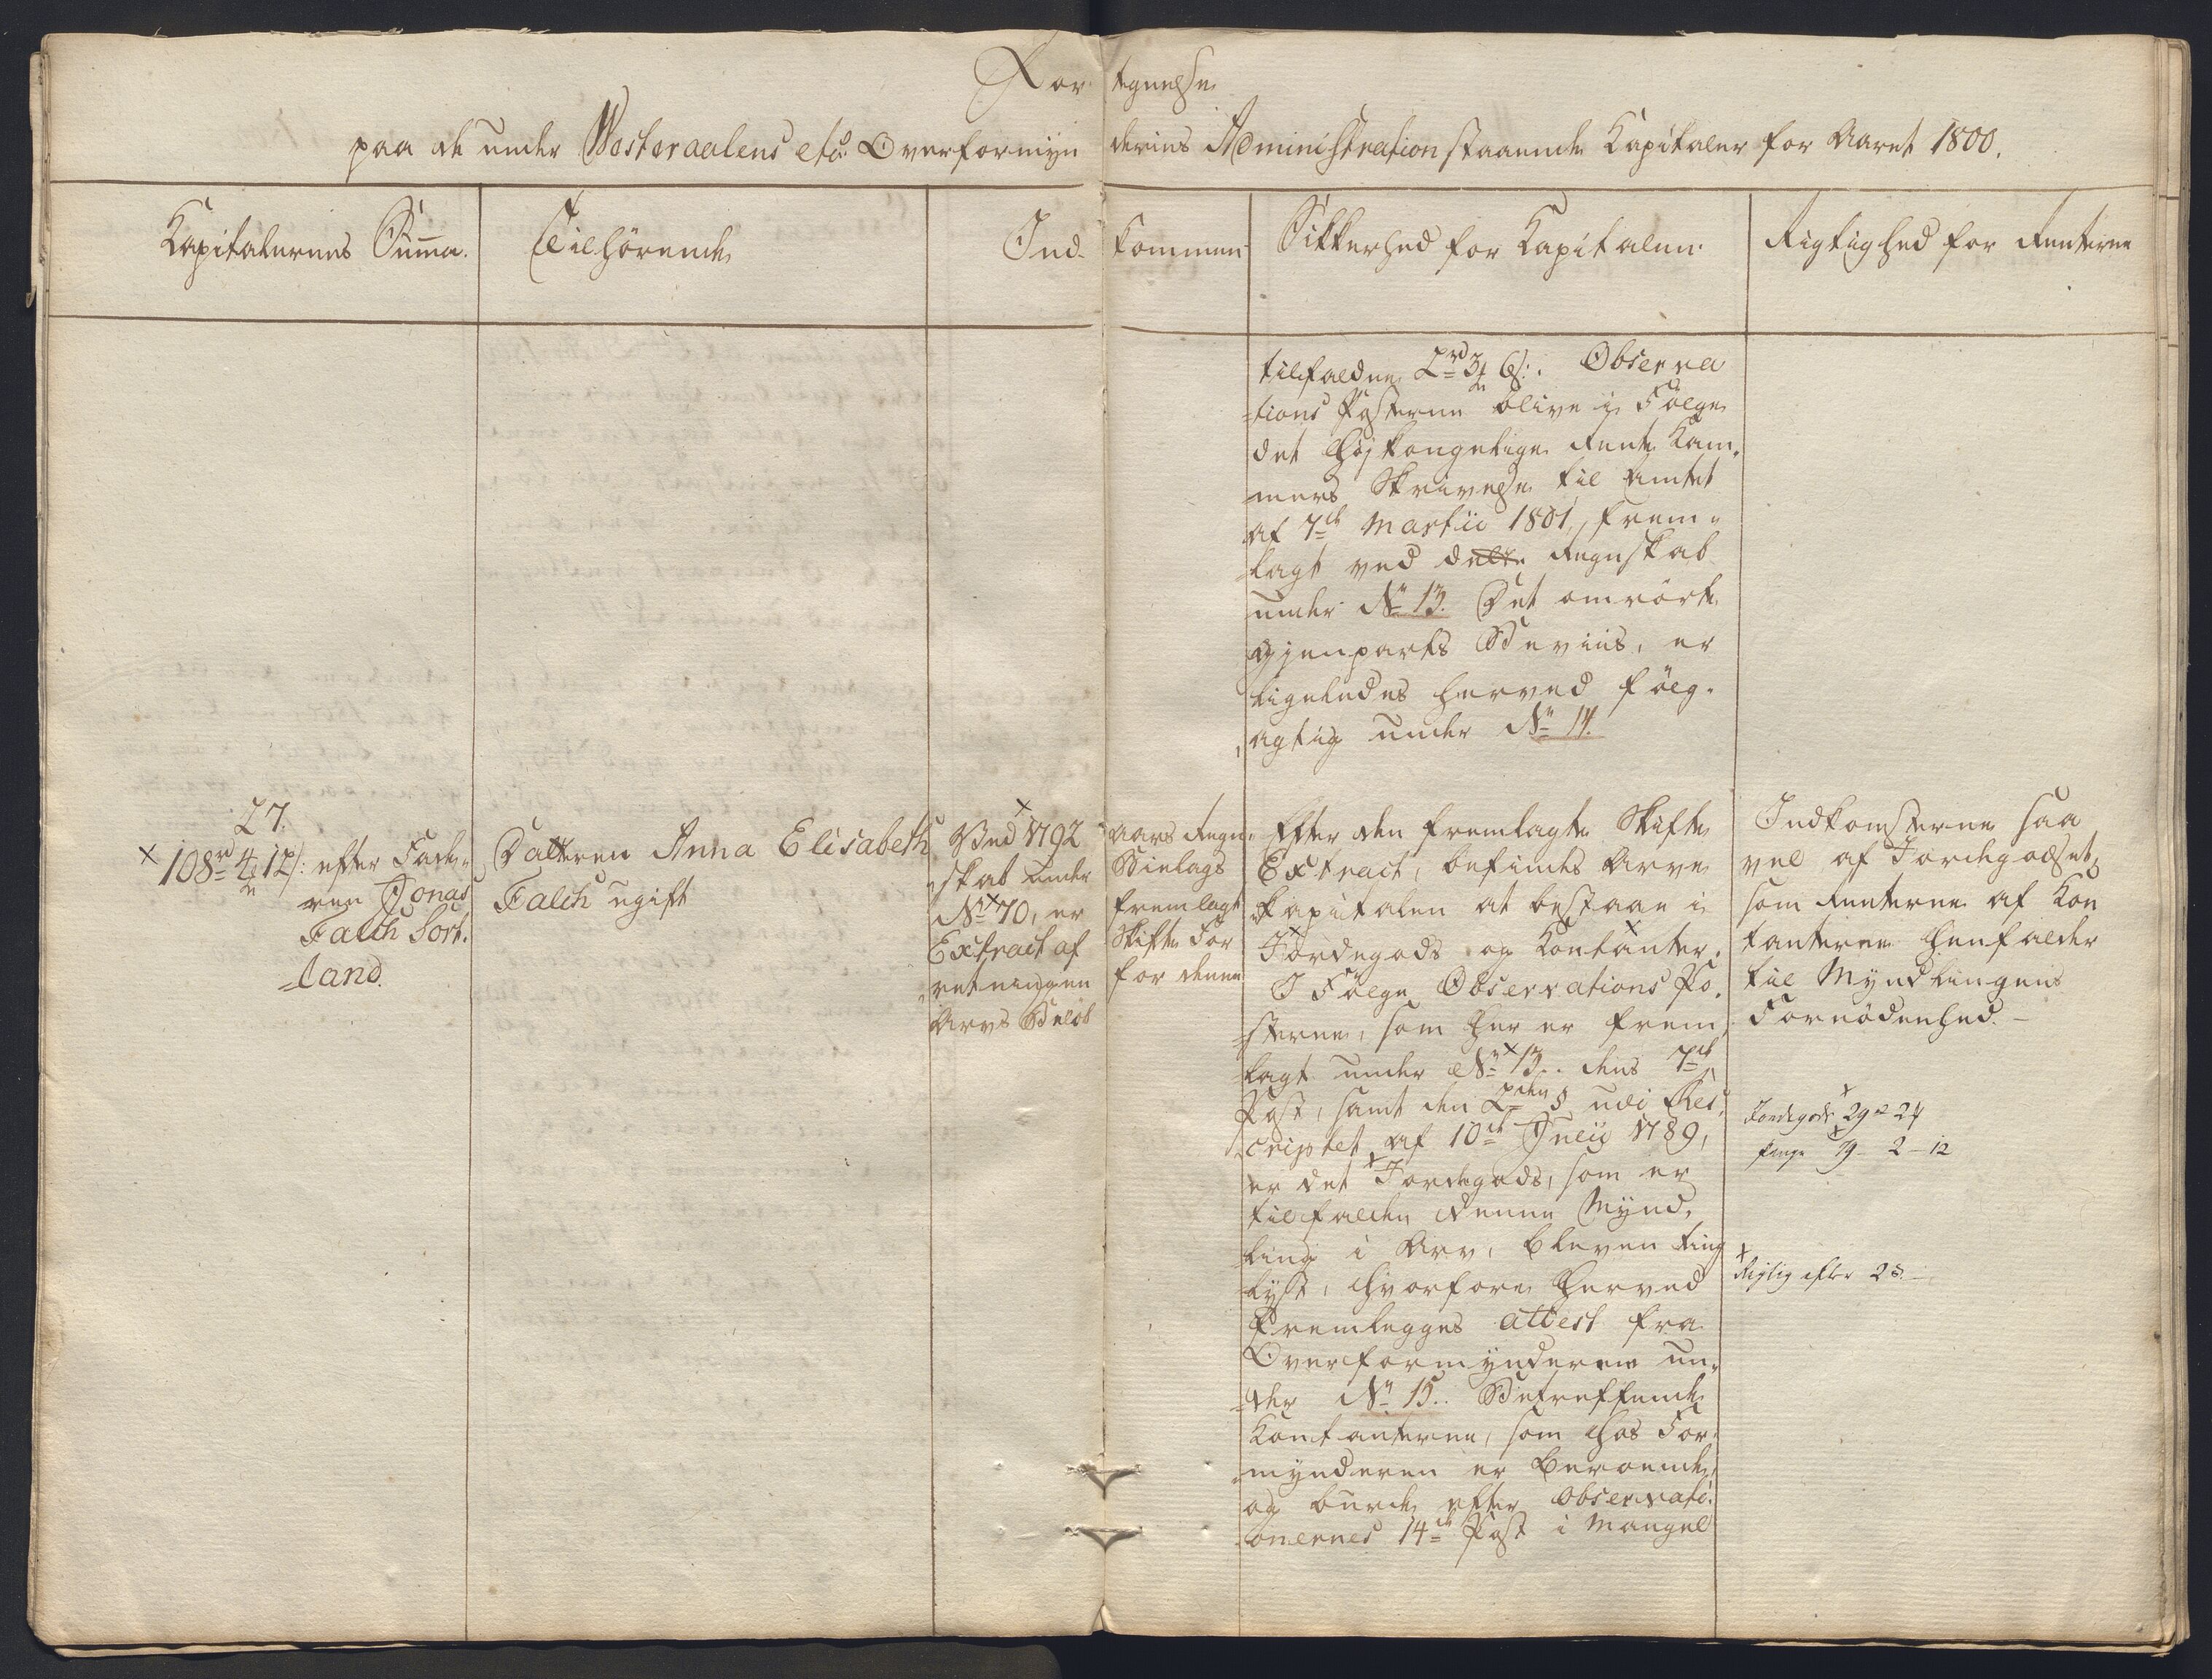 Fortegnelse
paa de under Westeraalens etc: Overformynderies Administration staaende Kapitaler for Aaret 1800.
Kapitalernes Suma.
Tilhörende
Indkommen
Sikkerhed for Kapitalen.
Rigtighed for Renterne
tilfaldne 2rd 3 6s:. Observa
=tions Posterne blive i Fölge
det Høj kongelige Rente Kam=
mers Skrivelse til Amtet
af 7de Martii 1801, frem=
=lagt ved dette Regnskab
under No 13. Det omrörte
Gjenparts Beviis, er
ligeledes herved fölg=
agtig under No 14.
27.
× 108rd 4 12s: efter Fade=
ren Jonas
Falch Sort=
=land.
Datteren Anna Elisabeth
Falch ugift
Ved 1792 aars Regn=
skab under Bielags
No 70, er fremlagt
Extract af Skifte For
retningen for denne
Arvs Beløb
Efter den fremlagte Skifte
Extract, befindes Arve
Kapitalen at bestaae i
Jordegods og Kontanter.
I Fölge Observations Po=
=sterne, som her er frem
=lagt under No 13.. dens 7de
Post, samt den 2den § udi Res=
criptet af 10de Julii 1789,
er det Jordegods, som er
tilfalden denne Mÿnd=
ling i Arv, bleven Ting
lyst, hvorfore herved
fremlegges attest fra
Overformÿnderen un=
=der No 15.. Betreffende
Kontanterne, som hos For=
=mÿnderen er beroende,
og burde efter Observati=
=onernes 14de Post i Mangel
Indkomsterne saa
vel af Jordegodset,
som Renterne af Kon
tanterne henfalder
til Mÿndlingens
Fornödenhed. –
Jordegods 29 rd 2 #
penge 79 – 2 – 12
Rigtig efter 28. –